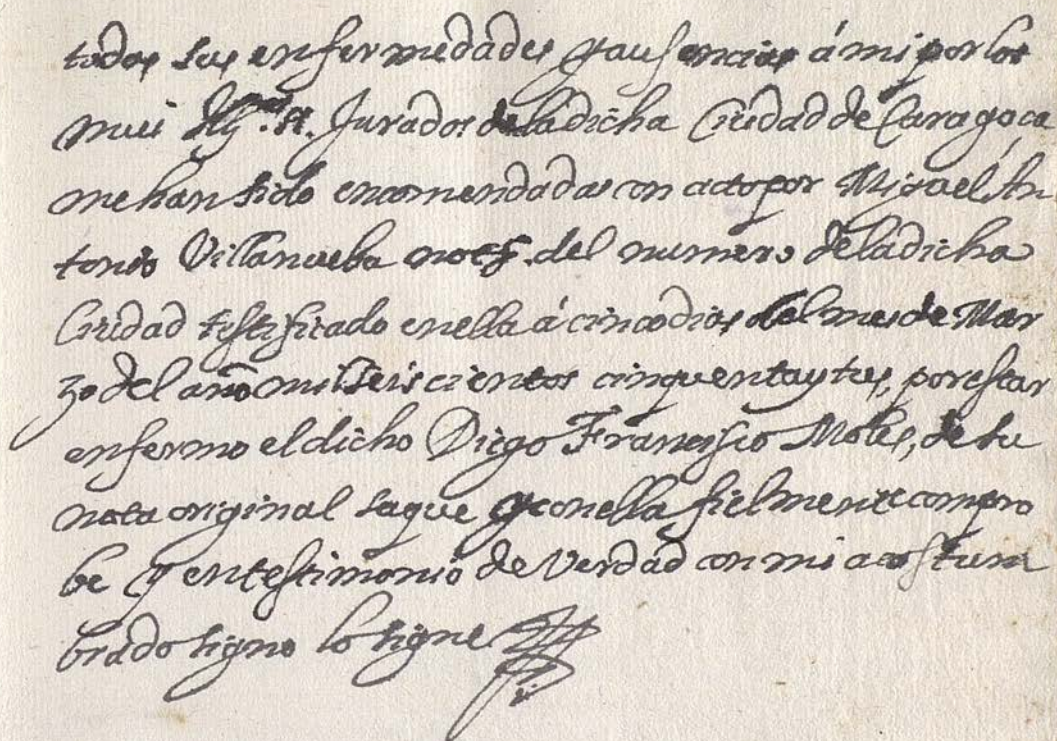 todas sus enfermedades y ausencias á mi por los
mui Ill.es S.res Jurados de la dicha Ciudad de Çaragoça
me han sido encomendadas con acto por Miguel An
tonio Villanueba not.º del numero de la dicha
Ciudad testificado en ella á cinco dias del mes de Mar
zo del año mil seis cientos cinquenta y tres, por estar
enfermo el dicho Diego Francisco Moles, de su
nota original saque y con ella fielmente compro
be y en testimonio de Verdad con mi acostum
brado signo lo signe